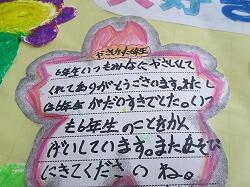 大好き
やさしい六年生
6年生いつもみんなにやさしくして
くれてありがとうございます。わたし
は6年生がだいすきでとた。いつ
も6年生のことをかん
がいしています。またあそび
にきてくださのね。